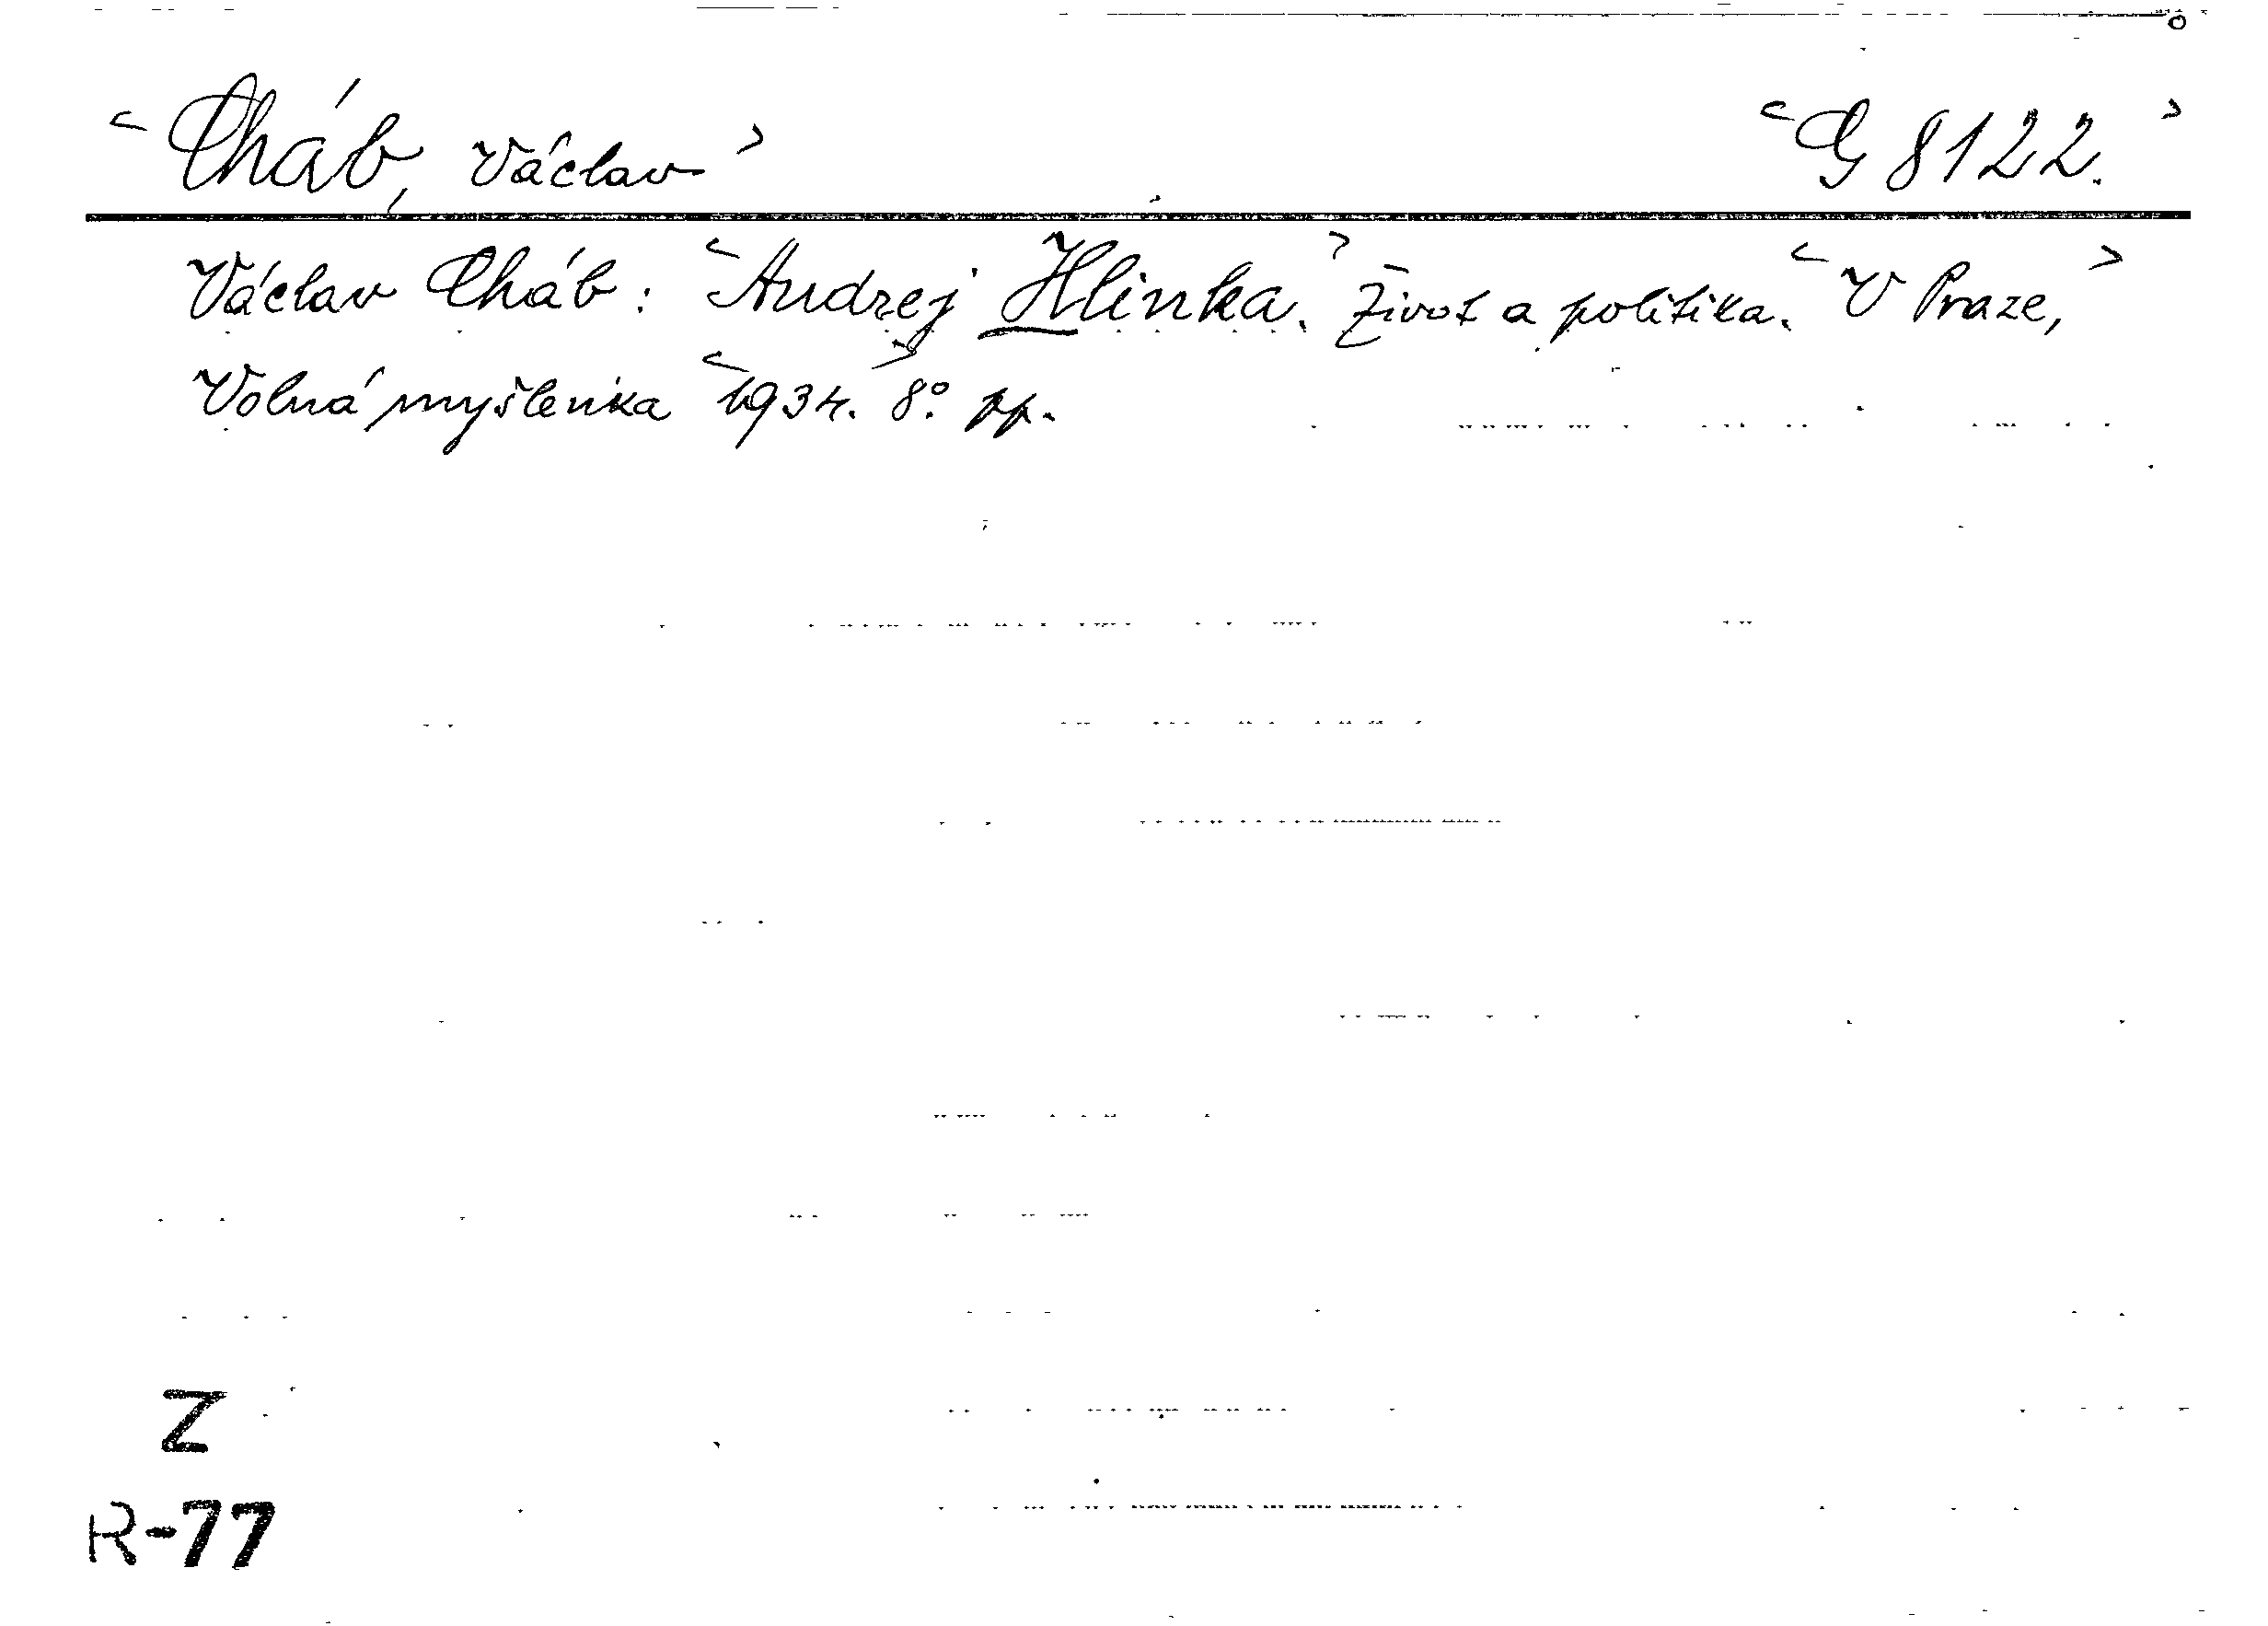 < Cháb, Václav > < G 8122. >
Václav Cháb: < Andrej Hlinka. > Život a politika. < V Praze, >
Volná myšlenka < 1934. > 8°. pp.
Z
R-77